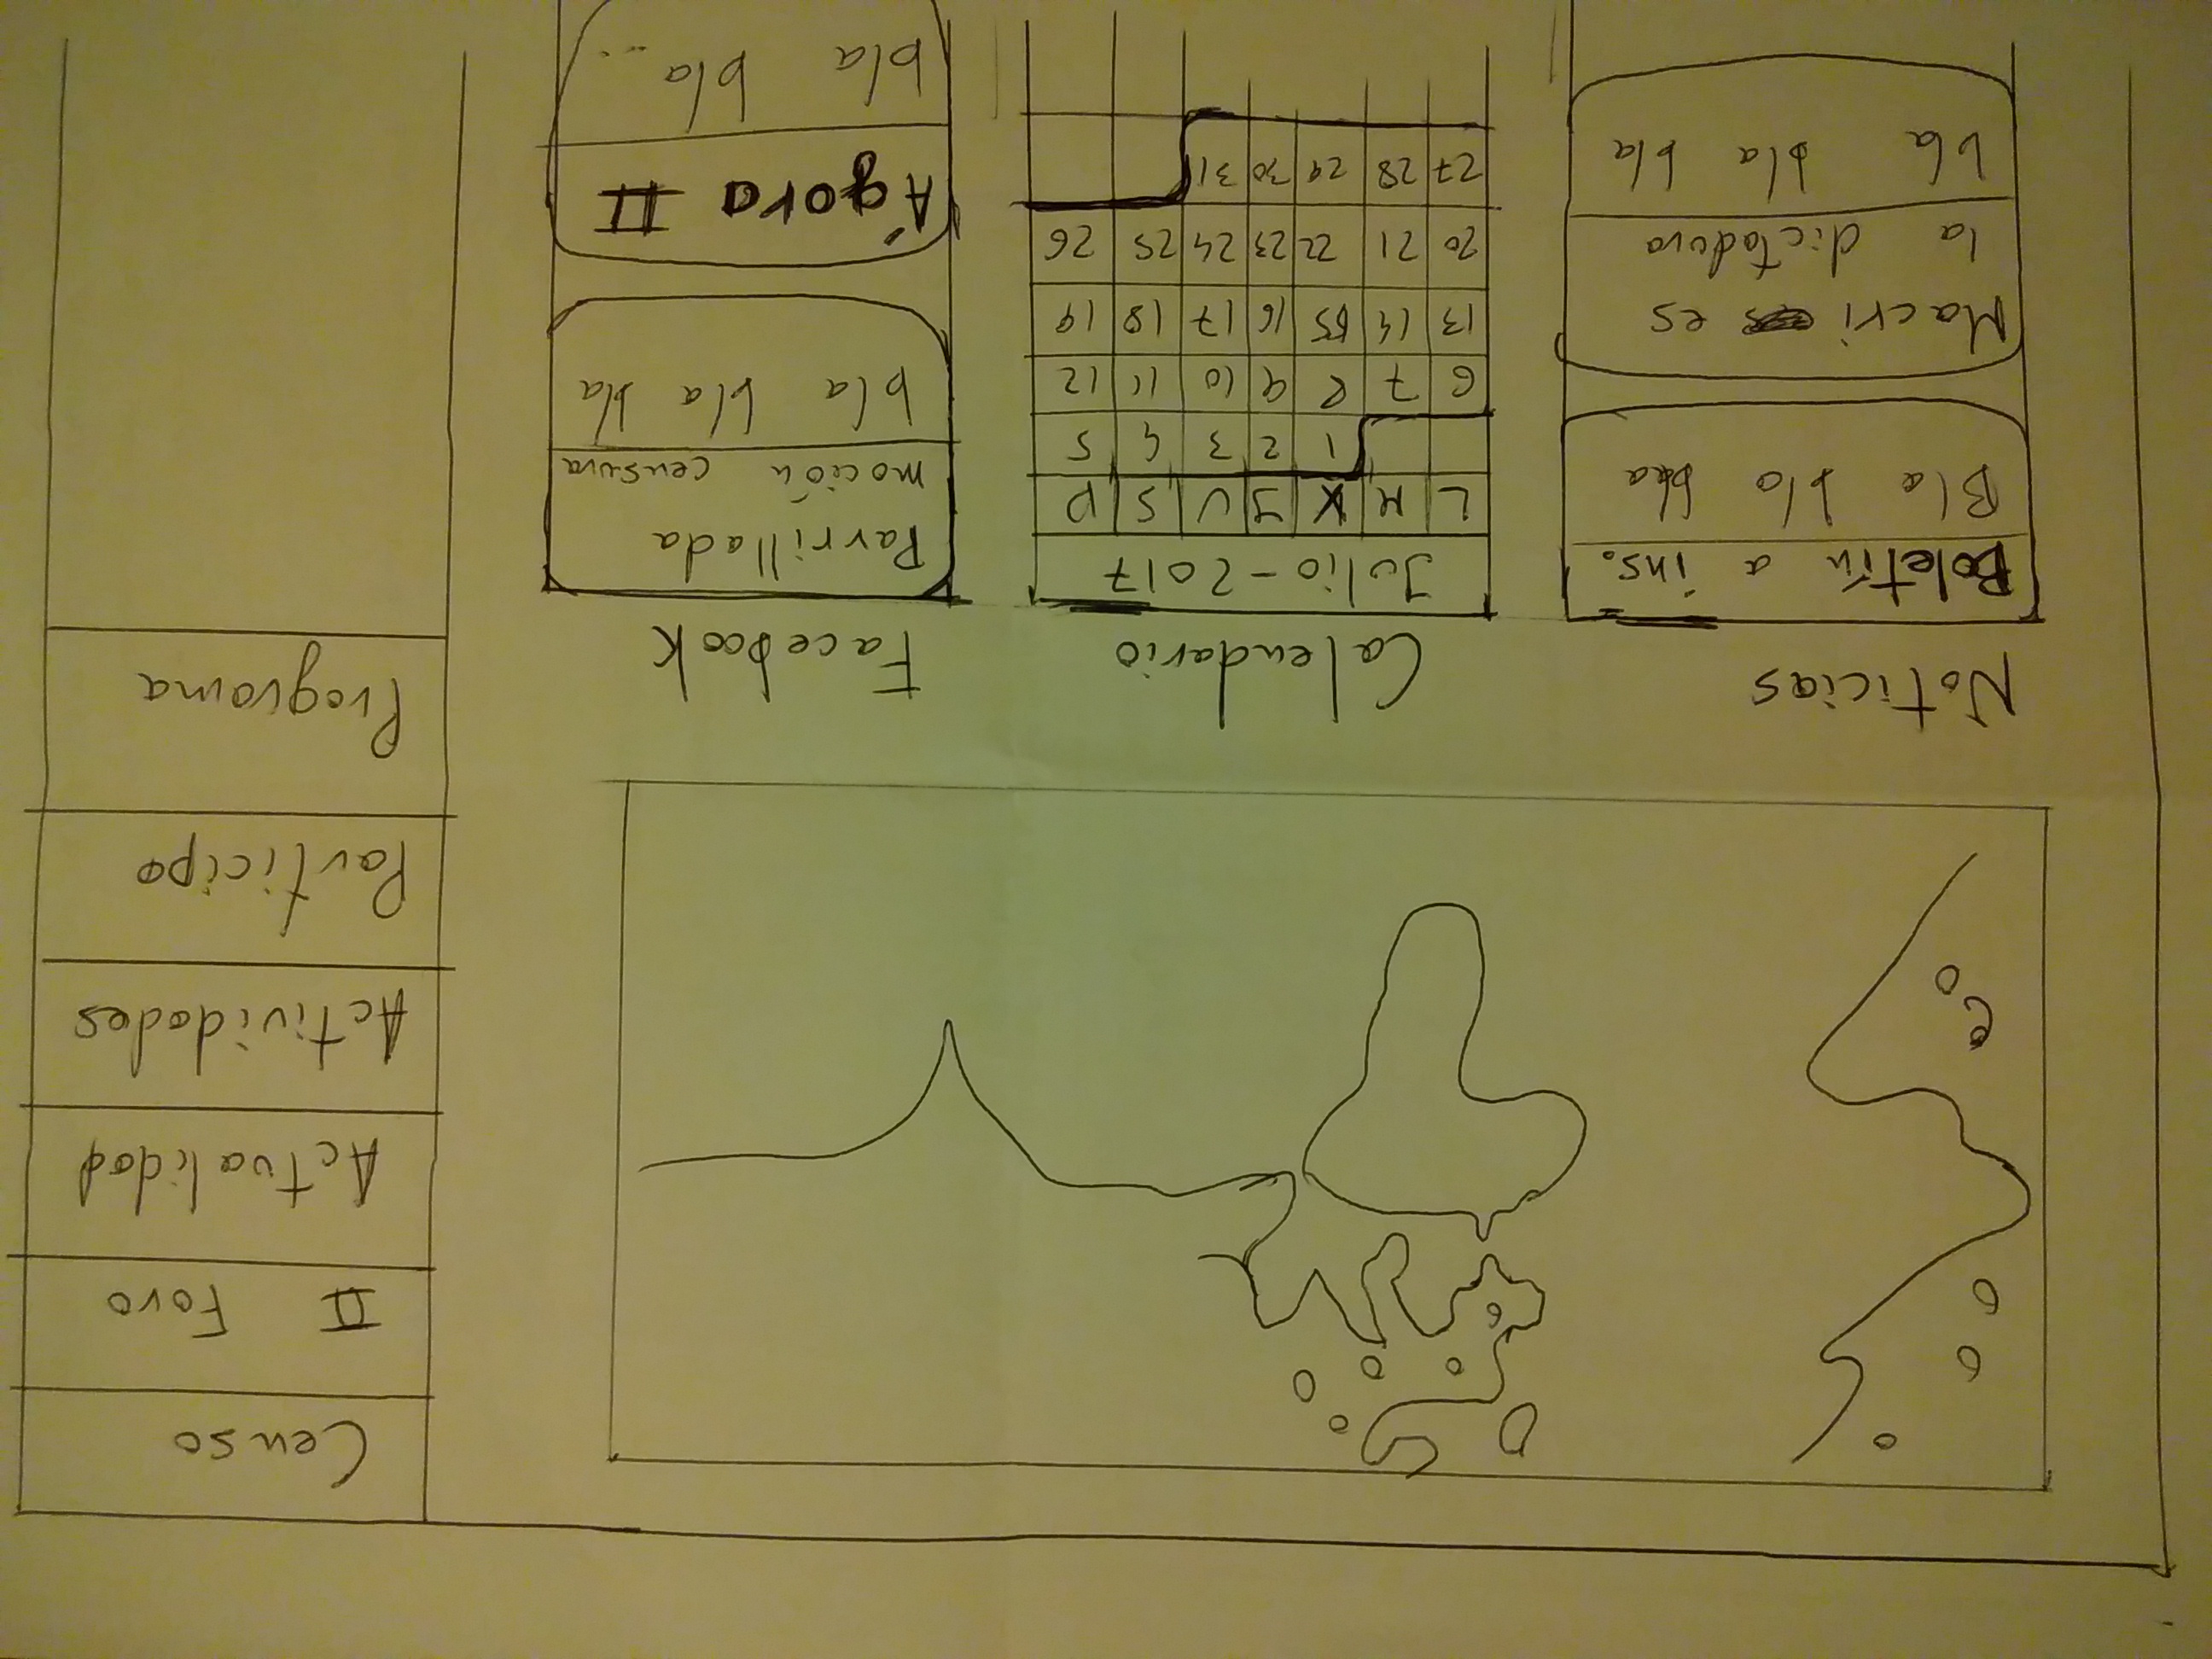 Censo
II Foro
Actualidad
Actividades
Participa
Programa
Noticias
Boletín a ins.
Bla bla bla
Macri es
la dictadura
bla bla bla
Calendario
Julio - 2017
L M X J V S D
1 2 3 4 5
6 7 8 9 10 11 12
13 14 15 16 17 18 19
20 21 22 23 24 25 26
27 28 29 30 31
Facebook
Parrillada
moción censura
bla bla bla
Ágora II
bla bla...